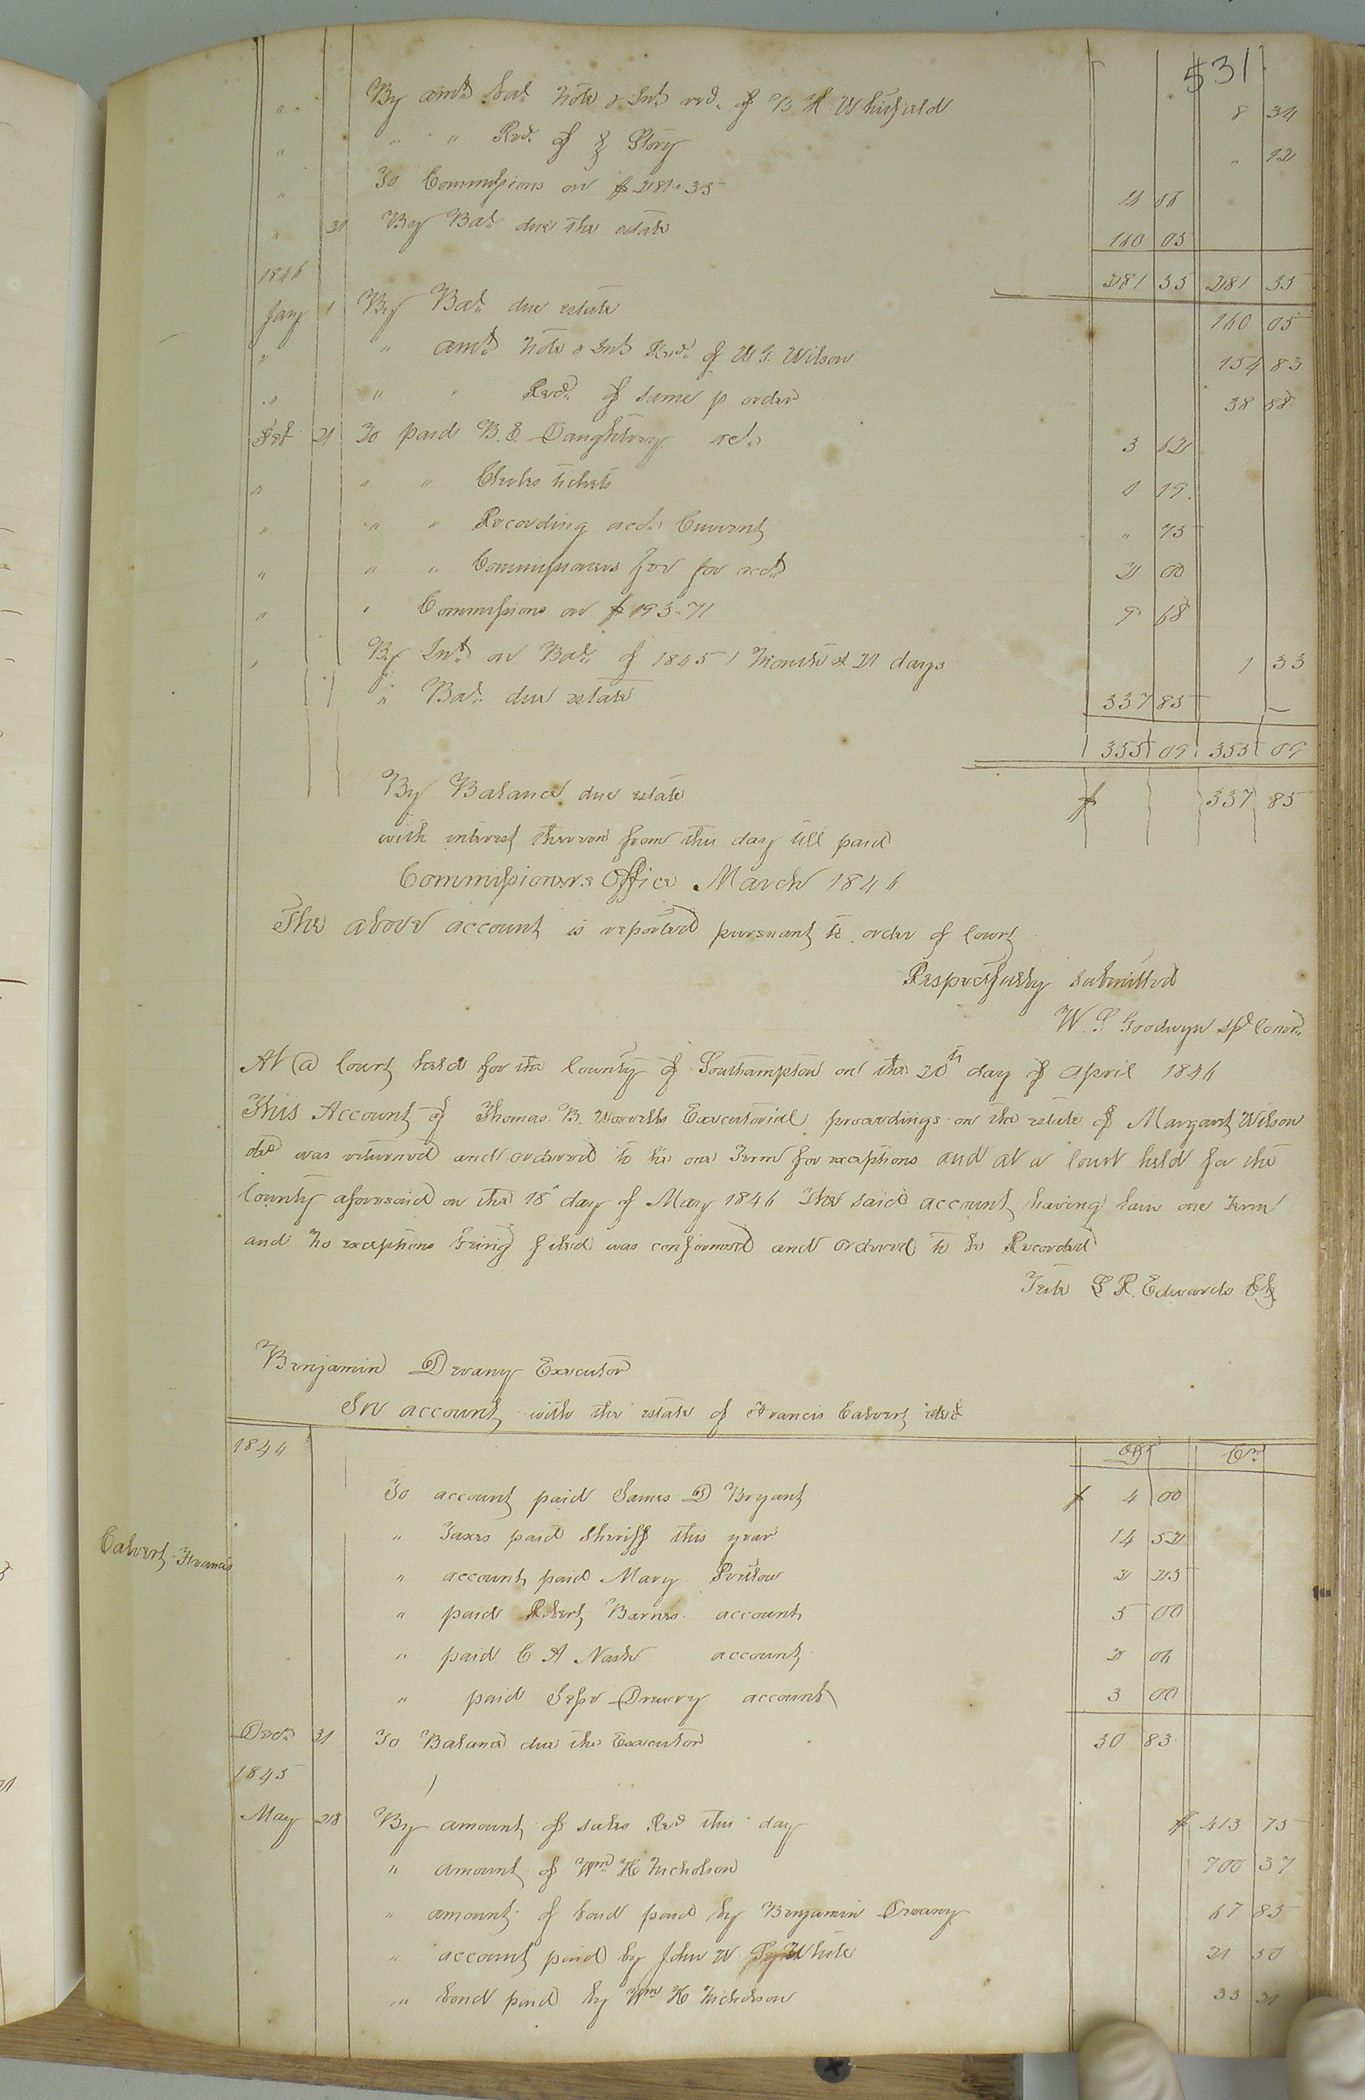 531
" By amt. bal. note & Int recd. of B H Whitfield 8 34
" " " Recd. of J Story " 12
" To Commissions on $281.35
" 31 By Bal. due the estate 05
1846 281 35 281 35
Jany 1 By Bal. due estate 160 05
" " amt. note & Int Recd. of W. J. Wilson 154 83
" " " Recd. of same p order 38 88
Feb 21 To paid B. E Daughtrey act. 3 62
" " " Clerks tickets 1 19
" " " Recording acct. Current " 75
" " " Commissioners fee for acct. 2 00
" " Commissions on $193.71 9 68
" By Int. on Bal. of 1845 1 Month & 21 days 1 33
" Bal. due estate 337 85
355 09 355 09
By Balance due estate $ 337 85
with interest thereon from this day till paid
Commissioners Office March 1846
The above account is reported pursuant to order of Court
Respectfully submitted
W. S Goodwyn spl Comr.
At a Court held for the County of Southampton on the 20th day of April 1846
This Account of Thomas B. Worrells Executorial proceedings on the estate of Margaret Wilson
decd was returned and ordered to lie one Term for exceptions and at a Court held for the
County aforesaid on the 18th day of May 1846 The said account having lain one Term
and no exceptions being filed was confirmed and ordered to be Recorded
Teste L. R. Edwards Clk
Benjamin Devany Executor
In account with the estate of Francis Calvert decd
1844 Dr Cr
To account paid James D Bryant $ 4 00
" Taxes paid Sheriff this year 14 52
Calvert Francis
" account paid Mary 2 25
" paid Robert Barnes account 5 00
" paid C A Nash account 2 06
" paid Jesse Drewry account 3 00
Decr. 31 To Balance due the Executor 30 83
1845
May 28 By amount of sales Recd this day $ 413 75
" amount of Wm H Nicholson 700 37
" amount of bond paid by Benjamin Devany 67 85
" account paid by John W White 21 50
" bond paid by Wm H Nicholson 33 31